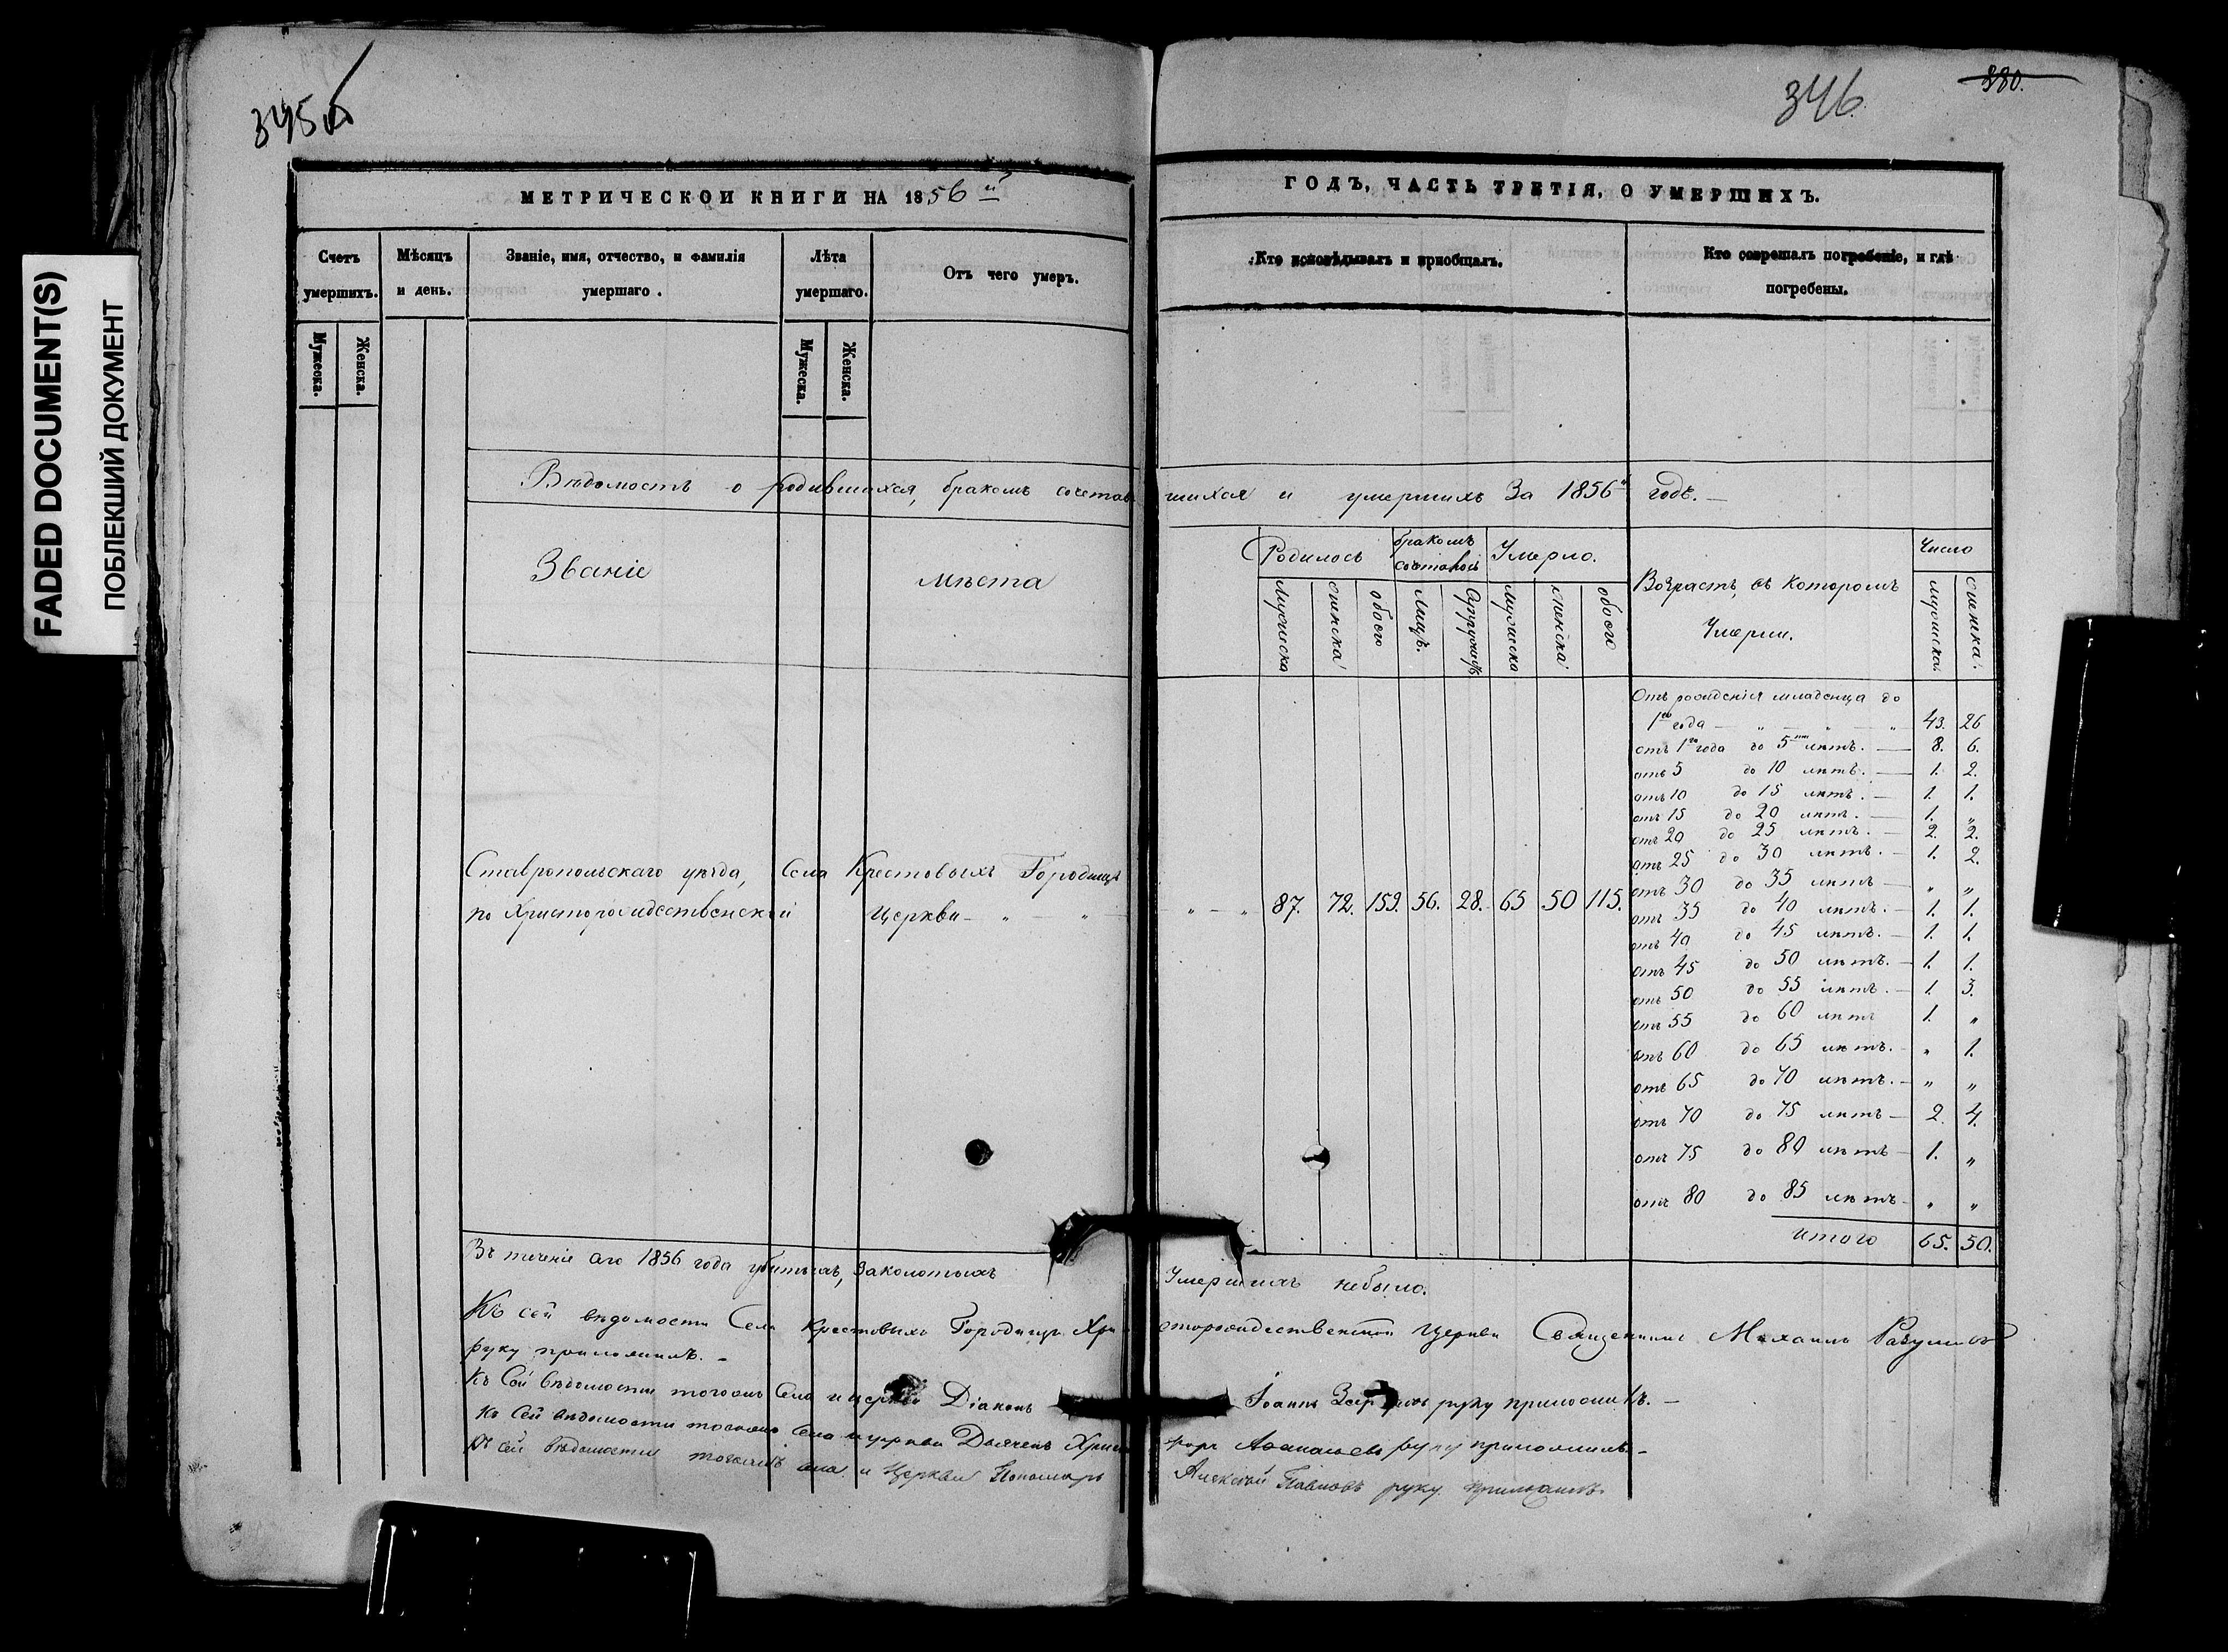 FADED DOCUMENT(S)
ПОБЛЕКШИЙ ДОКУМЕНТ
345об
МЕТРИЧЕСКОЙ КНИГИ НА 1856й
Счетъ умершихъ.
Мужеска.
Женска.
Мѣсяцъ и день.
Званіе, имя, отчество, и фамилія умершаго.
Лѣта умершаго.
Мужеска.
Женска.
Отъ чего умеръ.
346.
380.
ГОДЪ, ЧАСТЬ ТРЕТІЯ, О УМЕРШИХЪ.
Кто исповѣдывалъ и пріобщалъ.
Кто совершалъ погребеніе, и гдѣ погребены.
Вѣдомость о родившихся, бракомъ сочетавшихся и умершихъ За 1856й годъ.
Званіе мѣста
Родилось
мужеска
женска
обоего
бракомъ сочеталось
лицъ.
Супружествъ
Умерло.
мужеска
женска
обоего
Возрастъ, въ которомъ Умерли.
Число
мужеска.
женска.
Ставропольскаго уѣзда, Села Крестовыхъ Городищъ
по Христорождественской Церкви — „ — „ — „ — „ 87. 72. 159. 56. 28. 65 50 115.
Отъ рожденія младенца до
1го года — „ — „ — „ 43. 26
отъ 1го года до 5ти лѣтъ. — 8. 6.
отъ 5 до 10 лѣтъ. — 1. 2.
отъ 10 до 15 лѣтъ. — 1. 1.
отъ 15 до 20 лѣтъ. — 1. „
отъ 20 до 25 лѣтъ. — 2. 2.
отъ 25 до 30 лѣтъ. — 1. 2.
отъ 30 до 35 лѣтъ — „ „
отъ 35 до 40 лѣтъ. — 1. 1.
отъ 40 до 45 лѣтъ. — 1. 1.
отъ 45 до 50 лѣтъ. — 1. 1.
отъ 50 до 55 лѣтъ. — 1. 3.
отъ 55 до 60 лѣтъ 1. „
отъ 60 до 65 лѣтъ. — „ 1.
отъ 65 до 70 лѣтъ. — „ „
отъ 70 до 75 лѣтъ — 2. 4.
отъ 75 до 80 лѣтъ — 1. „
отъ 80 до 85 лѣтъ — „ „
итого 65. 50.
Въ теченіе сего 1856 года убитыхъ, заколотыхъ Умершихъ небыло.
Къ сей вѣдомости Села Крестовыхъ Городищъ Христорождественской Церкви Священникъ Михаилъ Разумовъ
руку приложилъ. —
Къ Сей вѣдомости тогожъ Села и церкви Діаконъ Іоаннъ руку приложилъ. —
Къ Сей вѣдомости тогожъ Села и церкви Дьячекъ Христофоръ Афанасьевъ руку приложилъ. —
Къ сей вѣдомости тогожъ села и Церкви Пономарь Алексей Павловъ руку приложилъ.